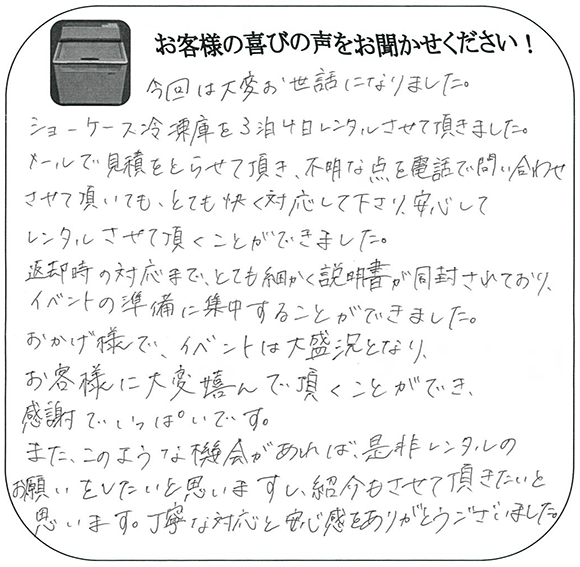 お客様の喜びの声をお聞かせください！
今回は大変お世話になりました。
ショーケース冷凍庫を3泊4日レンタルさせて頂きました。
メールで見積をとらせて頂き、不明な点を電話で問い合わせ
させて頂いても、とても快く対応して下さり、安心して
レンタルさせて頂くことができました。
返却時の対応まで、とても細かく説明書が同封されており、
イベントの準備に集中することができました。
おかげ様で、イベントは大盛況となり、
お客様に大変嬉んで頂くことができ、
感謝でいっぱいです。
また、このような機会があれば、是非レンタルの
お願いをしたいと思いますし、紹介もさせて頂きたいと
思います。丁寧な対応と安心感をありがとうございました。